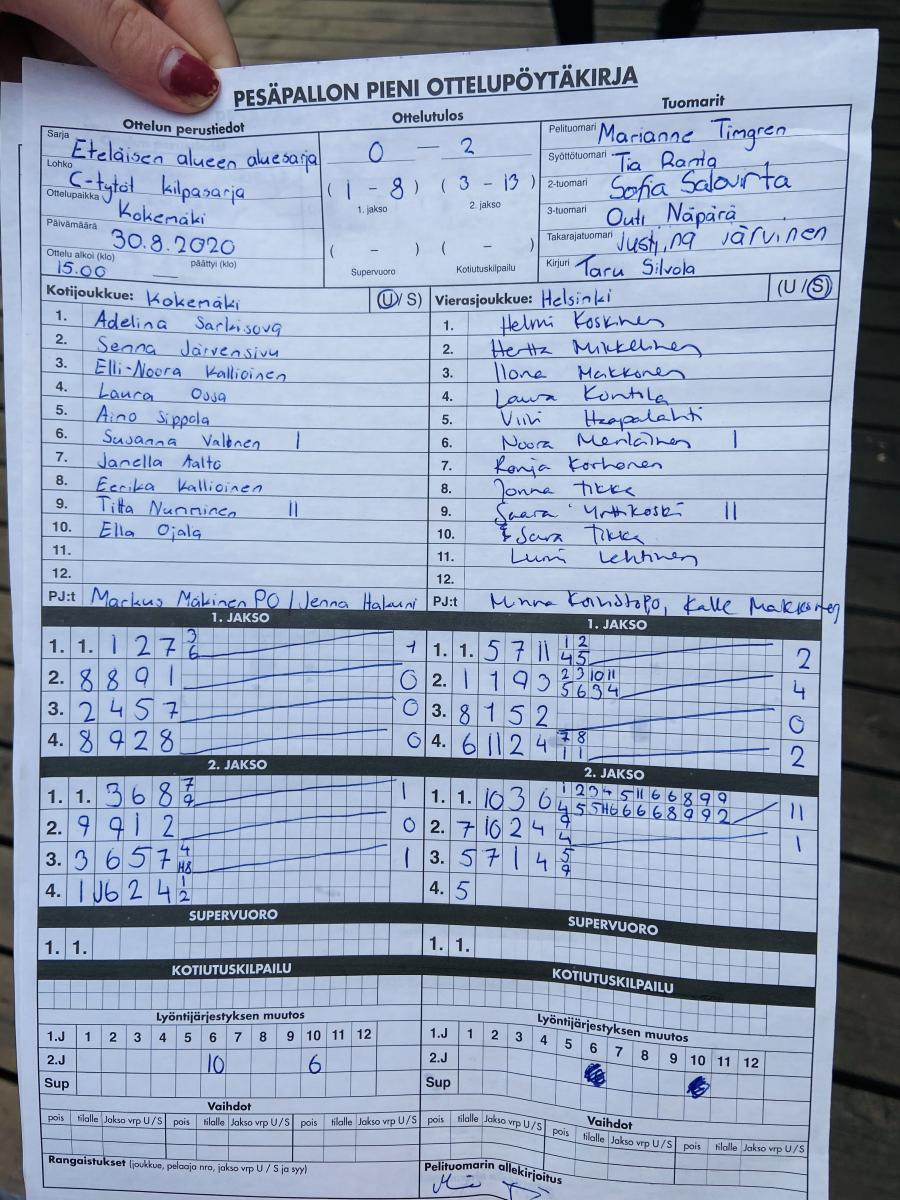 PESÄPALLON PIENI OTTELUPÖYTÄKIRJA
Ottelun perustiedot
Sarja Eteläisen alueen aluesarja
Lohko C-tytöt kilpasarja
Ottelupaikka Kokemäki
Päivämäärä 30.8.2020
Ottelu alkoi (klo) päättyi (klo)
15.00
Ottelutulos
0 - 2
(1 - 8) (3 - 13)
1. jakso 2. jakso
( - ) ( - )
Supervuoro Kotiutuskilpailu
Tuomarit
Pelituomari Marianne Timgren
Syöttötuomari Tia Ranta
2-tuomari Sofia Salovirta
3-tuomari Outi Näpärä
Takarajatuomari Justiina Järvinen
Kirjuri Taru Silvola
Kotijoukkue: Kokemäki (U/S)
1. Adelina Sarkisova
2. Senna Järvensivu
3. Elli-Noora Kallioinen
4. Laura Ossa
5. Aino Sippola
6. Susanna Valonen I
7. Janella Aalto
8. Eerika Kallioinen
9. Titta Numminen II
10. Ella Ojala
11.
12.
PJ:t Markus Mäkinen PO / Jenna Hakuni
Vierasjoukkue: Helsinki (U/S)
1. Helmi Koskinen
2. Hertta Mikkelinen
3. Ilona Makkonen
4. Laura Kontila
5. Viivi Haapalahti
6. Noora Meriläinen I
7. Ronja Korhonen
8. Jonna Tikka
9. Saara Yrttikoski II
10. Sara Tikka
11. Lumi Lehtinen
12.
PJ:t Minna Koivistopo, Kalle Makkonen
1. JAKSO
1. 1. 1 2 7 3 6 1
2. 8 8 9 1 0
3. 2 4 5 7 0
4. 8 9 2 8 0
1. JAKSO
1. 1. 5 7 11 1 2 2
4 5
2. 1 7 9 3 2 3 10 11 4
5 6 3 4
3. 8 1 5 2 0
4. 6 11 2 4 7 8 2
1 1
2. JAKSO
1. 1. 3 6 8 7 9 1
2. 9 9 1 2 0
3. 3 6 5 7 4 1
4. 1 6 2 4 1 2
2. JAKSO
1. 1. 10 3 6 1 2 3 4 5 11 6 6 8 9 9 11
4 5 5 6 6 6 8 9 9 2
2. 7 10 2 4 9 4 1
3. 5 7 1 4 5 9
4. 5
SUPERVUORO
1. 1.
SUPERVUORO
1. 1.
KOTIUTUSKILPAILU
KOTIUTUSKILPAILU
Lyöntijärjestyksen muutos
1.J 1 2 3 4 5 6 7 8 9 10 11 12
2.J 10 6
Sup
Lyöntijärjestyksen muutos
1.J 1 2 3 4 5 6 7 8 9 10 11 12
2.J
Sup
Vaihdot
pois tilalle Jakso vrp U/S pois tilalle Jakso vrp U/S pois tilalle Jakso vrp U/S
Vaihdot
pois tilalle Jakso vrp U/S pois tilalle Jakso vrp U/S pois tilalle Jakso vrp U/S
Rangaistukset (joukkue, pelaaja nro, jakso vrp U / S ja syy)
Pelituomarin allekirjoitus